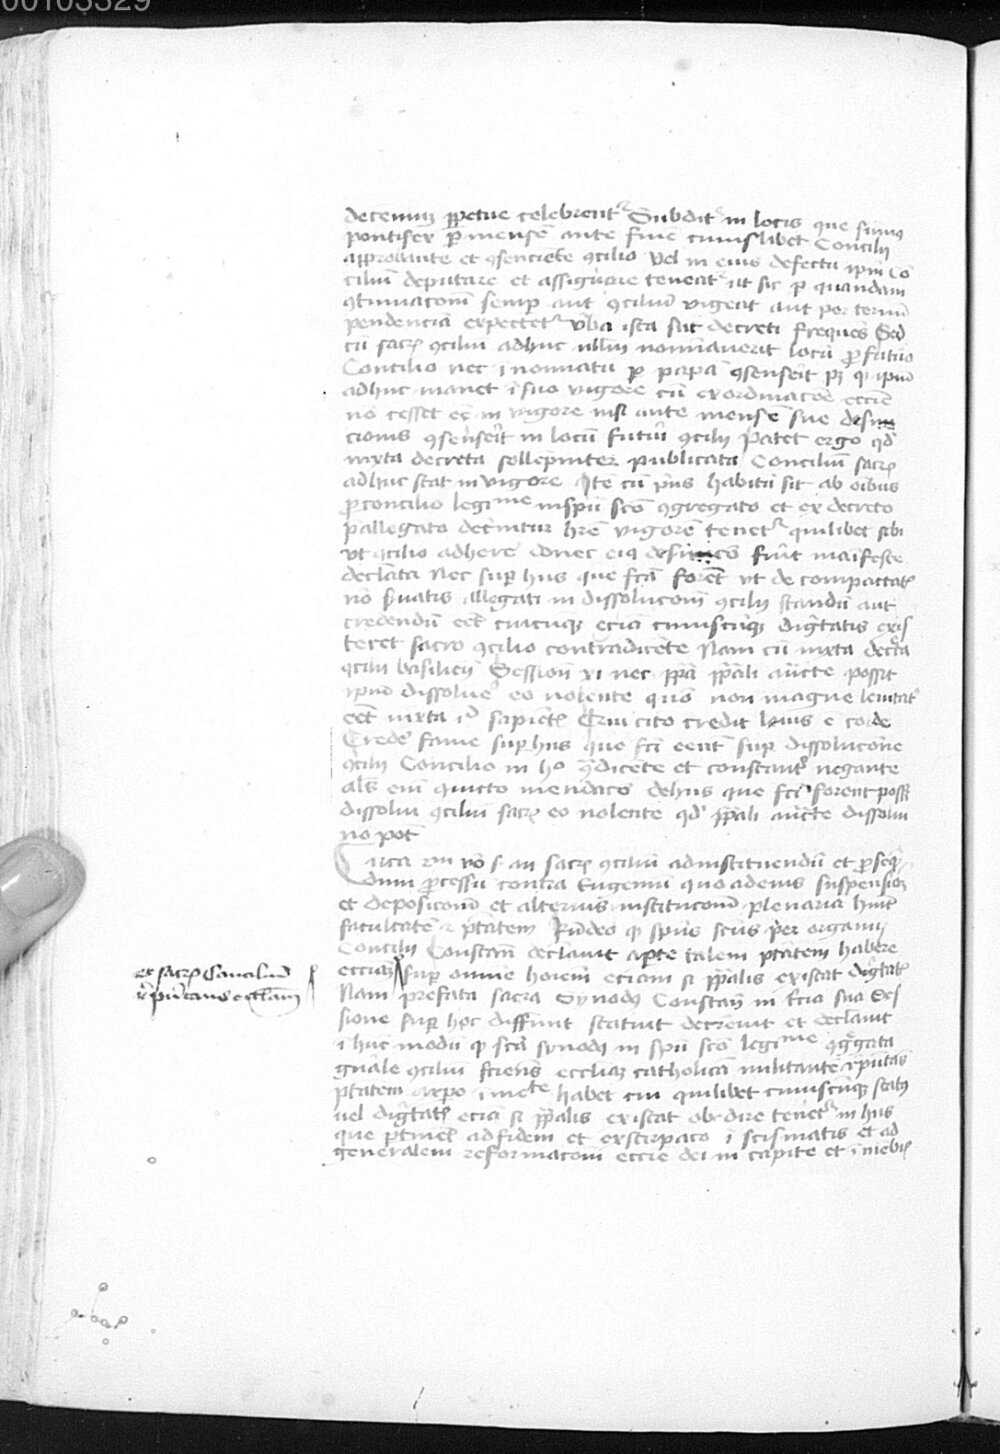 00103329
decennium perpetue celebrentur Subditur in locis que summus
pontifex per mensem ante finem cuiuslibet Concilii
approbante et consenciente concilio vel in eius defectu ipsum Con
cilium deputare et assignare teneatur ut sic per quandam
continuacionem semper aut concilium vigeat aut per termini
pendenciam expectetur verba ista sunt decreti frequens Sed
cum sacrum concilium adhuc nullum nominaverit locum pro futuro
Concilio nec in nominatum per papam consenserit patet quod ipsum
adhuc manet in suo vigore cum ex ordinacione ecclesie
non cesset esse in vigore nisi ante mensem sue
cionis consenserit in locum futuri concilii Patet ergo quod
iuxta decreta sollempniter publicata Concilium sacrum
adhuc stat in vigore Item cum prius habitum sit ab omnibus
pro concilio legitime in spiritu sancto congregato et ex decreto
preallegato decernitur habere vigorem tenetur quilibet sibi
ut concilio adherere donec eius fuerit manifeste
declarata Nec super hiis que facta forent ut de compactatis
non servatis allegati in dissolucionem concilii standum aut
credendum esset cuicumque eciam cuiuscumque dignitatis exis
teret sacro concilio contradicente Nam cum iuxta decreta
concilii basiliensis Sessione xi nec papa papali auctoritate possit
ipsum dissolvere eo nolente quomodo non magne levitatis
esset iuxta id sapientis Qui cito credit levis est corde
Credere fame super hiis que facti essent super dissolucione
concilii Concilio in hoc contradicente et constanter negante
alias enim quicto mendacio de hiis que facti forent posset
dissolvi concilium sacrum eo nolente quod papali auctoritate dissolvi
non potest
Circa secundum vero scilicet an sacrum concilium ad instituendum et prosequen
dum processum contra Eugenium quoad eius suspensionem
et deposicionem et alterius institucionem plenariam habuit
facultatem et potestatem Respondeo quod spiritus sanctus per organum
Concilii Constanciensis declaravit aperte talem potestatem habere
ecclesiam super omnem hominem eciam si papalis existat dignitatis
et sacrum Concilium
representans ecclesiam
Nam prefata sacra Synodus Constanciensis in tercia sua Ses
sione super hoc diffiniit statuit decrevit et declaravit
in hunc modum quod sancta synodus in spiritu sancto legitime congregata
generale concilium faciens ecclesiam catholicam militantem representans
potestatem a christo immediate habet cui quilibet cuiuscumque status
vel dignitatis eciam si papalis existat obedire tenetur in hiis
que pertinent ad fidem et exstirpacionem scismatis et ad
generalem reformacionem ecclesie dei in capite et in membris